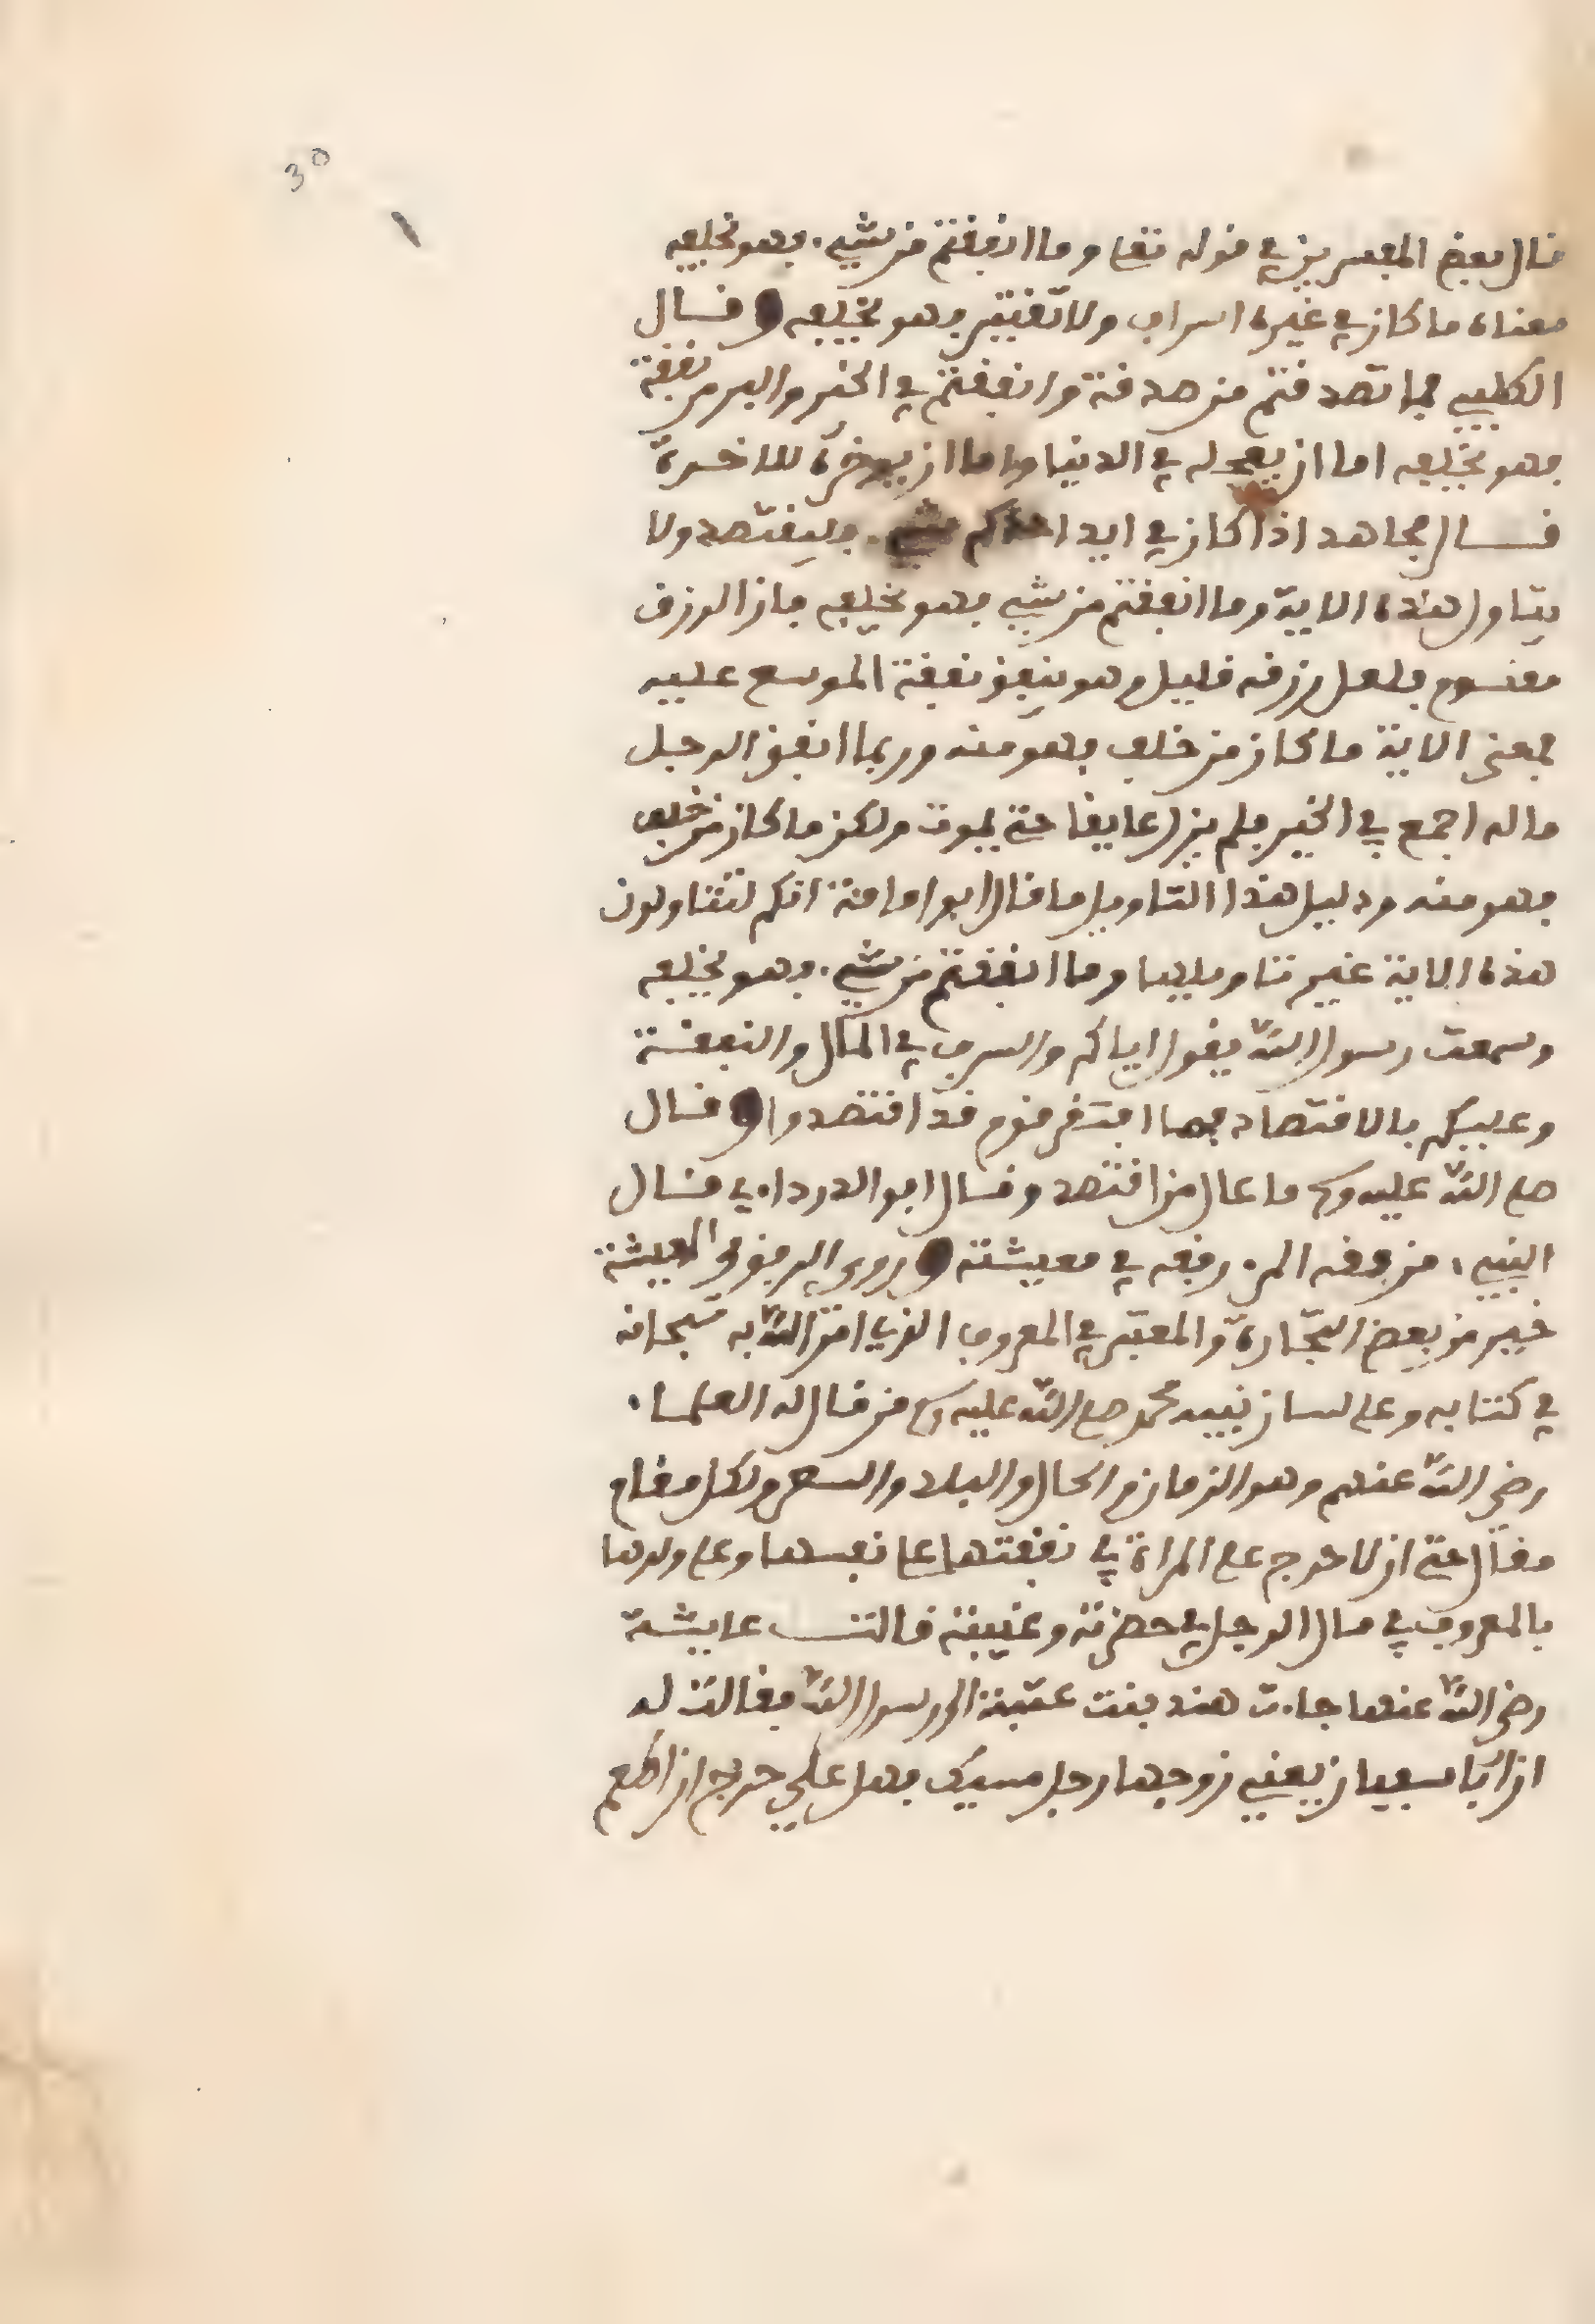 30
قال بعض المفسرين في قوله تعلى وما انفقتم من شيء فهو يخلفه
معناه ما كان في غيره اسراف ولا تقتير فهو يخلفه وقال
الكلبي فما تصدقتم من صدقة وانفقتم في الخير والبر من نفقة
فهو يخلفه اما ان يعجله في الدنيا واما ان يدخره للاخرة
قال مجاهد اذا كان في ايد احدكم شيء فليقتصد ولا
يتاول هذه الاية وما انفقتم من شيء فهو يخلفه فان الرزق
مقسوم فلعل رزقه قليل وهو ينفق نفقة الموسع عليه
فمعنى الاية ما كان من خلف فهو منه وربما انفق الرجل
ماله اجمع في الخير فلم يزل عايفا حتى يموت ولكن ما كان من خلف
فهو منه ودليل هذا التاويل ما قال ابو امامة انكم لتتناولون
هذه الاية غير تناويلها وما انفقتم من شيء فهو يخلفه
وسمعت رسول الله يقول اياكم والسرف في المال والنفقة
وعليكم بالاقتصاد فما افتقر قوم قد اقتصدوا وقال
صلى الله عليه وسلم ما عال من اقتصد وقال ابو الدرداء ي قال
النبي من فقه المرء رفقه في معيشته وروي الرفق في المعيشة
خير من بعض التجارة والمعتبر في المعروف الذي امر الله به سبحانه
في كتابه وعلى لسان نبيه محمد صلى الله عليه وسلم من قال له العلماء
رضي الله عنهم وهو الزمان والحال والبلد والسعر ولكل مقام
مقال حتى ان لا حرج على المراة في نفقتها على نفسها وعلى ولدها
بالمعروف في مال الرجل في حضرته وغيبته قالت عايشة
رضي الله عنها جاءت هند بنت عتبة الى رسول الله فقالت له
ان ابا سفيان يعني زوجها رجل مسيك فهل علي حرج ان اطعم